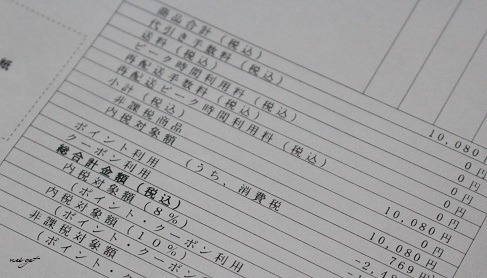 紙
商品合計（税込）
代引き手数料（税込）
送料（税込）
ピーク時間利用料（税込）
再配送手数料（税込）
再配送ピーク時間利用料（税込）
小計（税込）
非課税商品
内税対象額 （うち、消費税
ポイント利用
クーポン利用
総合計金額（税込）
内税対象額（8%）
（ポイント・クーポン利用
内税対象額（10%）
（ポイント・クーポン
非課税対象額
（ポイント・ク
10,080円
0円
0円
0円
0円
0円
10,080円
0円
10,080円
769円